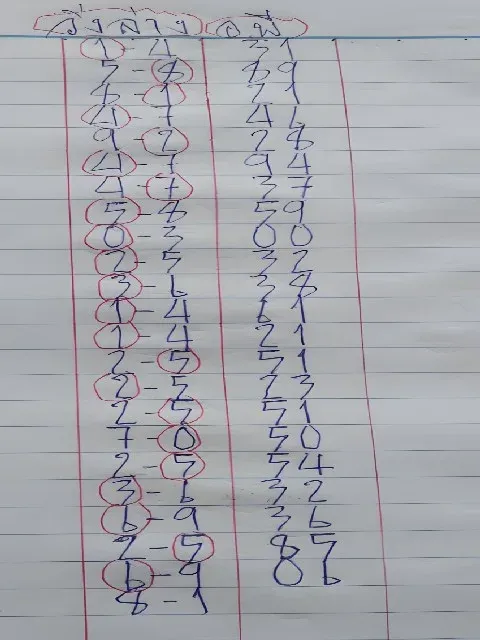 วิ่งล่าง อ พ
1 - 4 31
5 - 8 89
8 - 1 71
4 - 7 46
9 - 2 28
4 - 7 94
4 - 7 37
5 - 8 59
0 - 3 00
2 - 5 32
3 - 6 38
1 - 4 61
1 - 4 21
2 - 5 51
2 - 5 23
2 - 5 51
7 - 0 50
2 - 5 54
3 - 6 32
6 - 9 36
2 - 5 85
6 - 9 06
8 - 1